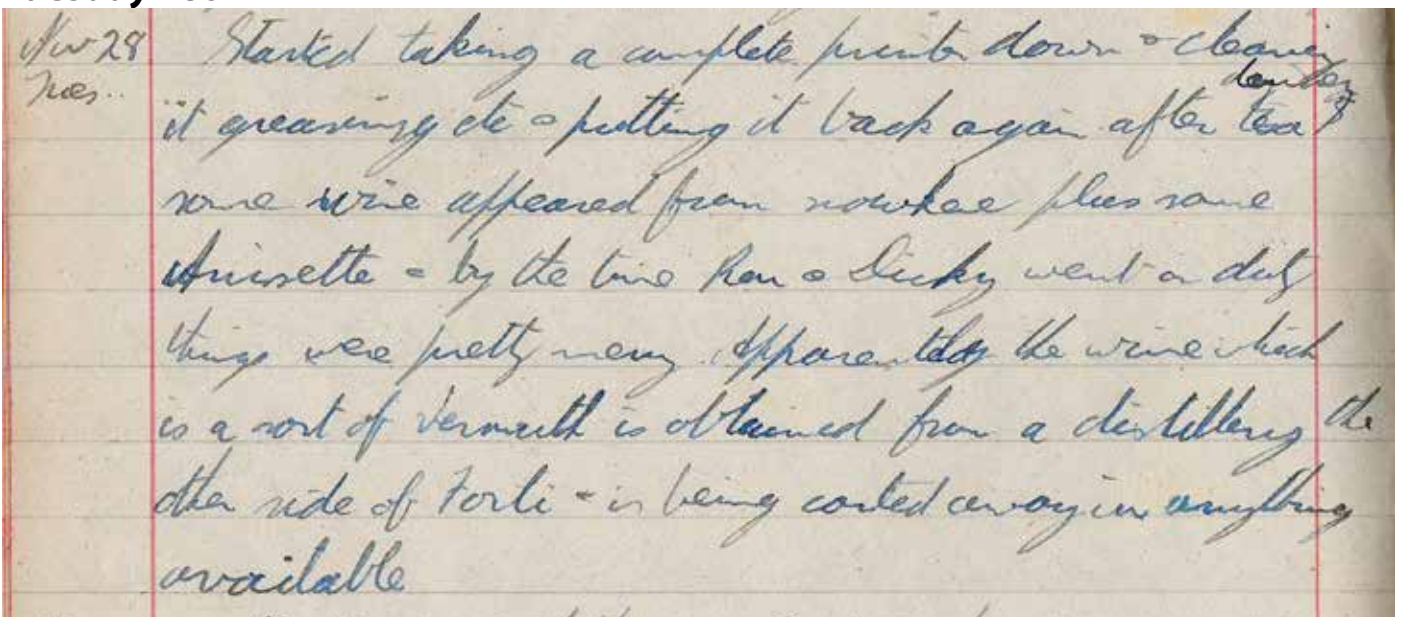 Nov 28 Started taking a complete printer down & cleaning
Tues.. it greasing etc & putting it back again after tea
some wine appeared from nowhere plus some
Anisette & by the time Ron & Dicky went on duty
things were pretty merry. Apparently the wine which
is a sort of Vermouth is obtained from a distillery the
other side of Forli & is being carted away in anything
available